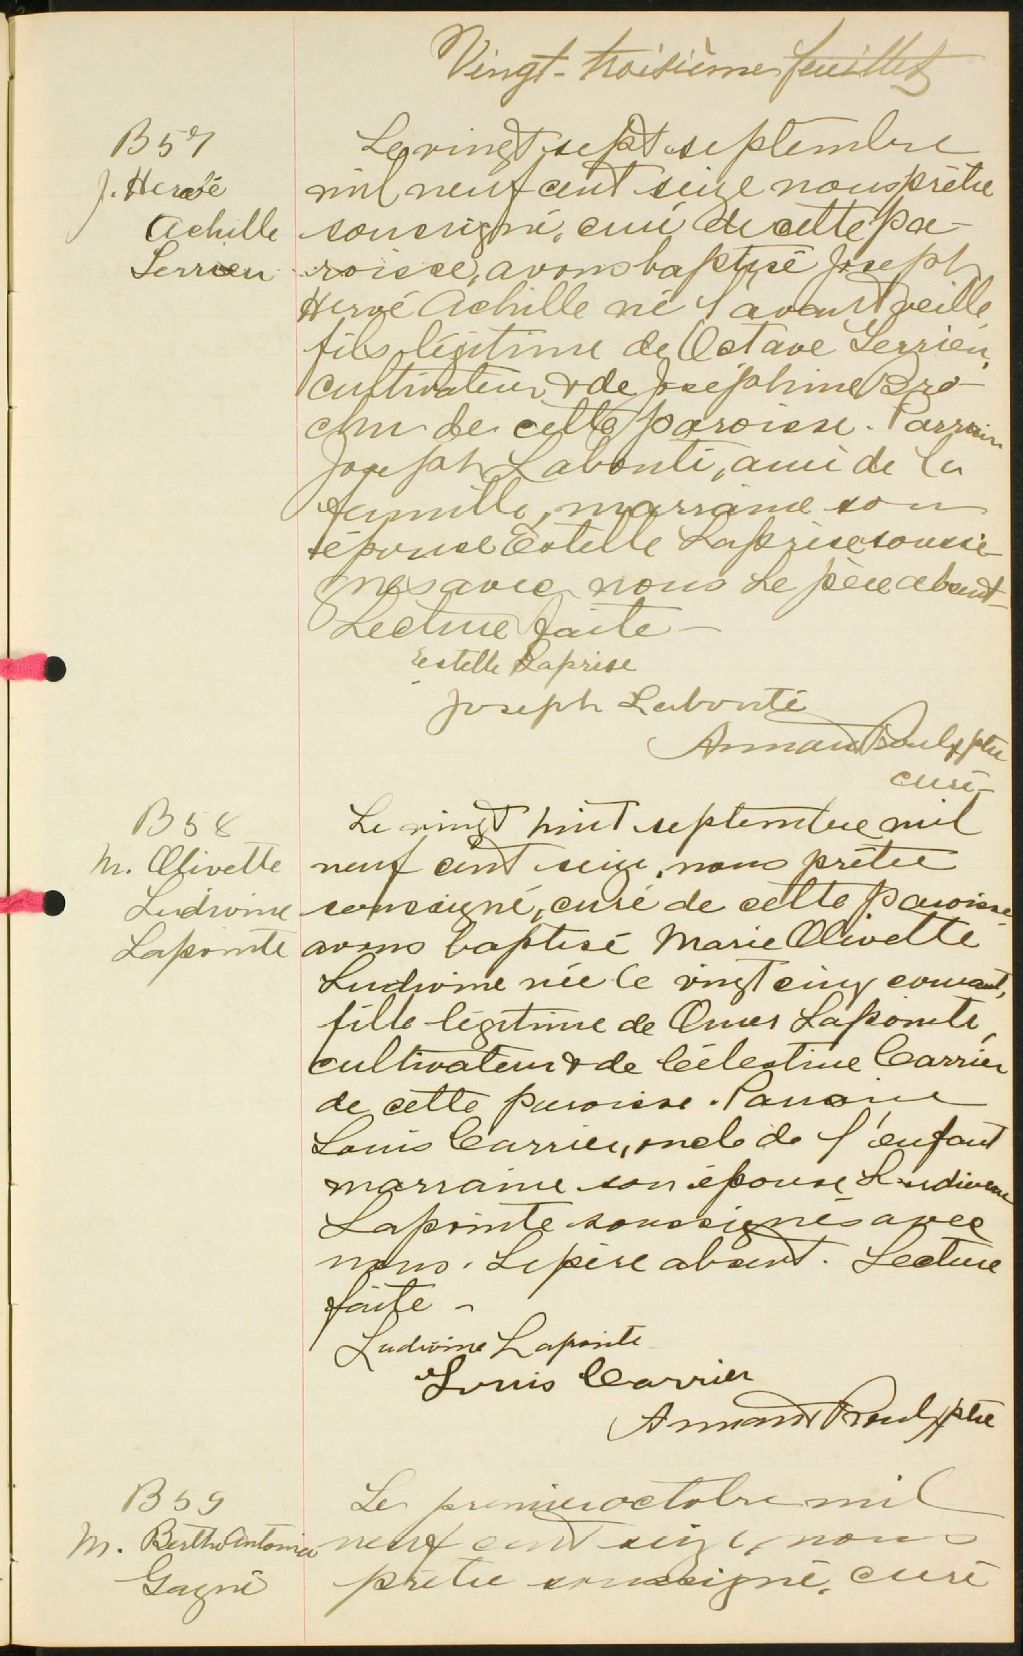 Vingt-troisième feuillet
B 57
J. Hervé
Achille
Terrien
Le vingt sept septembre
mil neuf cent seize nous prêtre
soussigné, curé de cette pa-
roisse, avons baptisé Joseph
Hervé Achille né l'avant veille,
fils légitime de Octave Terrien,
cultivateur & de Joséphine Bro-
chu de cette paroisse. Parrain
Joseph Labonté, ami de la
famille, marraine son
épouse Estelle Laprise soussi-
gnés avec nous. Le père absent-
Lecture faite -
Estelle Laprise
Joseph Labonté
Armand Proulx ptre
curé-
B 58
M. Olivette
Ludivine
Lapointe
Le vingt huit septembre mil
neuf cent seize, nous prêtre
soussigné, curé de cette paroisse
avons baptisé Marie Olivette
Ludivine née le vingt cinq courant,
fille légitime de Omer Lapointe,
cultivateur & de Célestine Carrier
de cette paroisse. Parrain
Louis Carrier, oncle de l'enfant
marraine son épouse Ludivine
Lapointe soussignés avec
nous. Le père absent. Lecture
faite -
Ludivine Lapointe
Louis Carrier
Armand Proulx ptre
B 59
M. Berthe Antonia
Gagné
Le premier octobre mil
neuf cent seize, nous
prêtre soussigné, curé